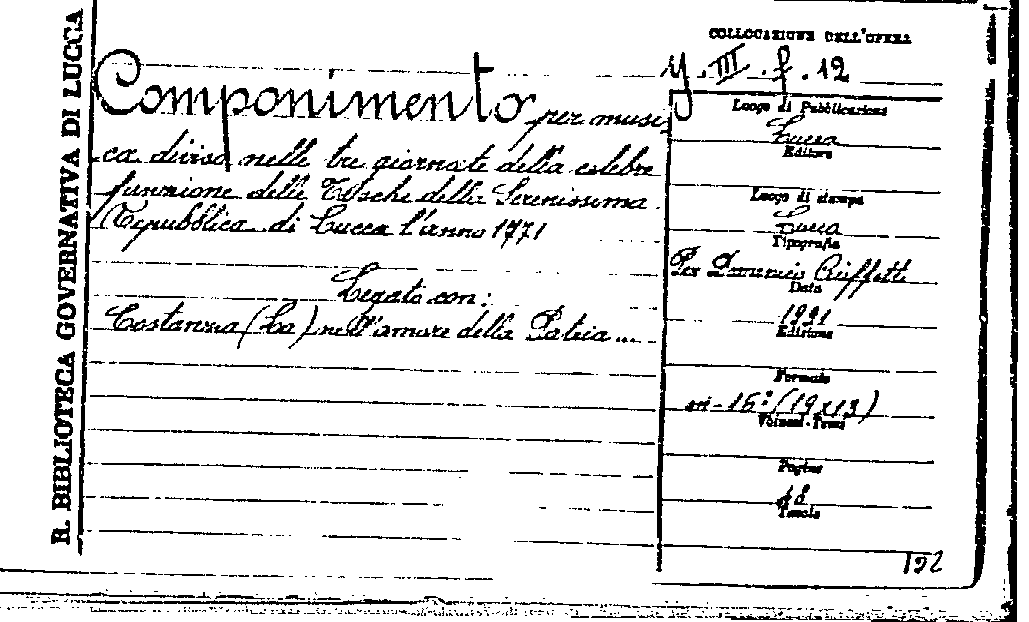 R. BIBLIOTECA GOVERNATIVA DI LUCCA
Componimento per musi-
ca diviso nelle tre giornate della celebre
funzione delle Tasche della Serenissima
Repubblica di Lucca l'anno 1771
Legato con:
Costanza (La) nell'amore della Patria ...
COLLOCAZIONE DELL'OPERA
Y. III. f. 12
Luogo di Pubblicazione
Lucca
Editore
Luogo di stampa
Lucca
Tipografia
Per Domenico Ciuffetti
Data
Edizione
Formato
in-16° (19x13)
Volumi-Tomi
Pagine
18
Tavole
192